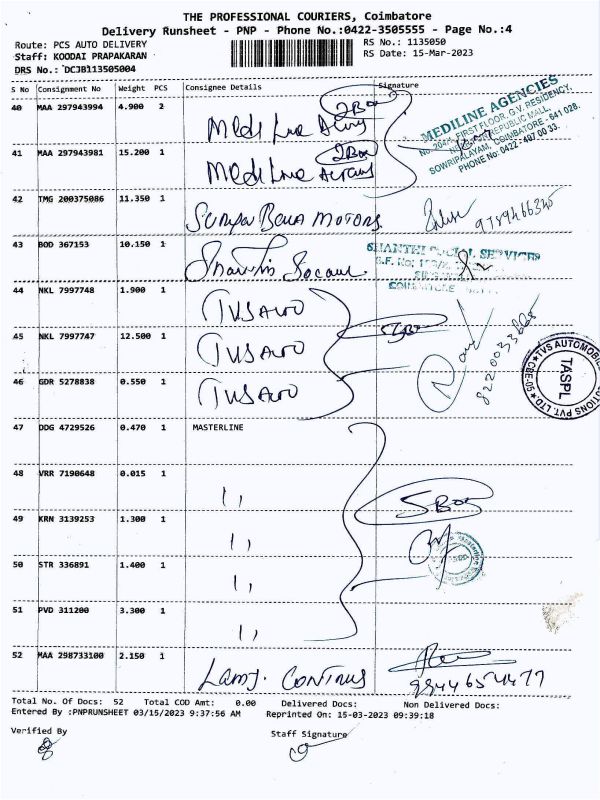 THE PROFESSIONAL COURIERS, Coimbatore
Delivery Runsheet - PNP - Phone No.:0422-3505555 - Page No.:4
Route: PCS AUTO DELIVERY
RS No.: 1135050
Staff: KOODAI PRAPAKARAN
RS Date: 15-Mar-2023
DRS No.: DCJB113505004
S No Consignment No Weight PCS Consignee Details Signature
40 MAA 297943994 4.900 2
2Box
MEDILINE AGENCIES
No. 204/A, FIRST FLOOR, G.V. RESIDENCY,
SOWRIPALAYAM, COIMBATORE - 641 028.
PHONE No: 0422 - 497 00 33.
41 MAA 297943981 15.200 1
2Box
42 TMG 200375086 11.350 1
MOTORS
9789466345
43 BOD 367153 10.150 1
SHANTHI SOCIAL SERVICES
COIMBATORE
44 NKL 7997748 1.900 1 TVS AUTO
45 NKL 7997747 12.500 1 TVS AUTO
46 GDR 5278838 0.550 1 TVS AUTO
TVS AUTOMOBILE
PVT. LTD.
CBE-05
TASPL
47 DDG 4729526 0.470 1 MASTERLINE
48 VRR 7190648 0.015 1 ,,
5Box
49 KRN 3139253 1.300 1 ,,
50 STR 336891 1.400 1 ,,
51 PVD 311200 3.300 1 ,,
52 MAA 298733100 2.150 1
Total No. Of Docs: 52 Total COD Amt: 0.00 Delivered Docs: Non Delivered Docs:
Entered By :PNPRUNSHEET 03/15/2023 9:37:56 AM Reprinted On: 15-03-2023 09:39:18
Verified By
Staff Signature